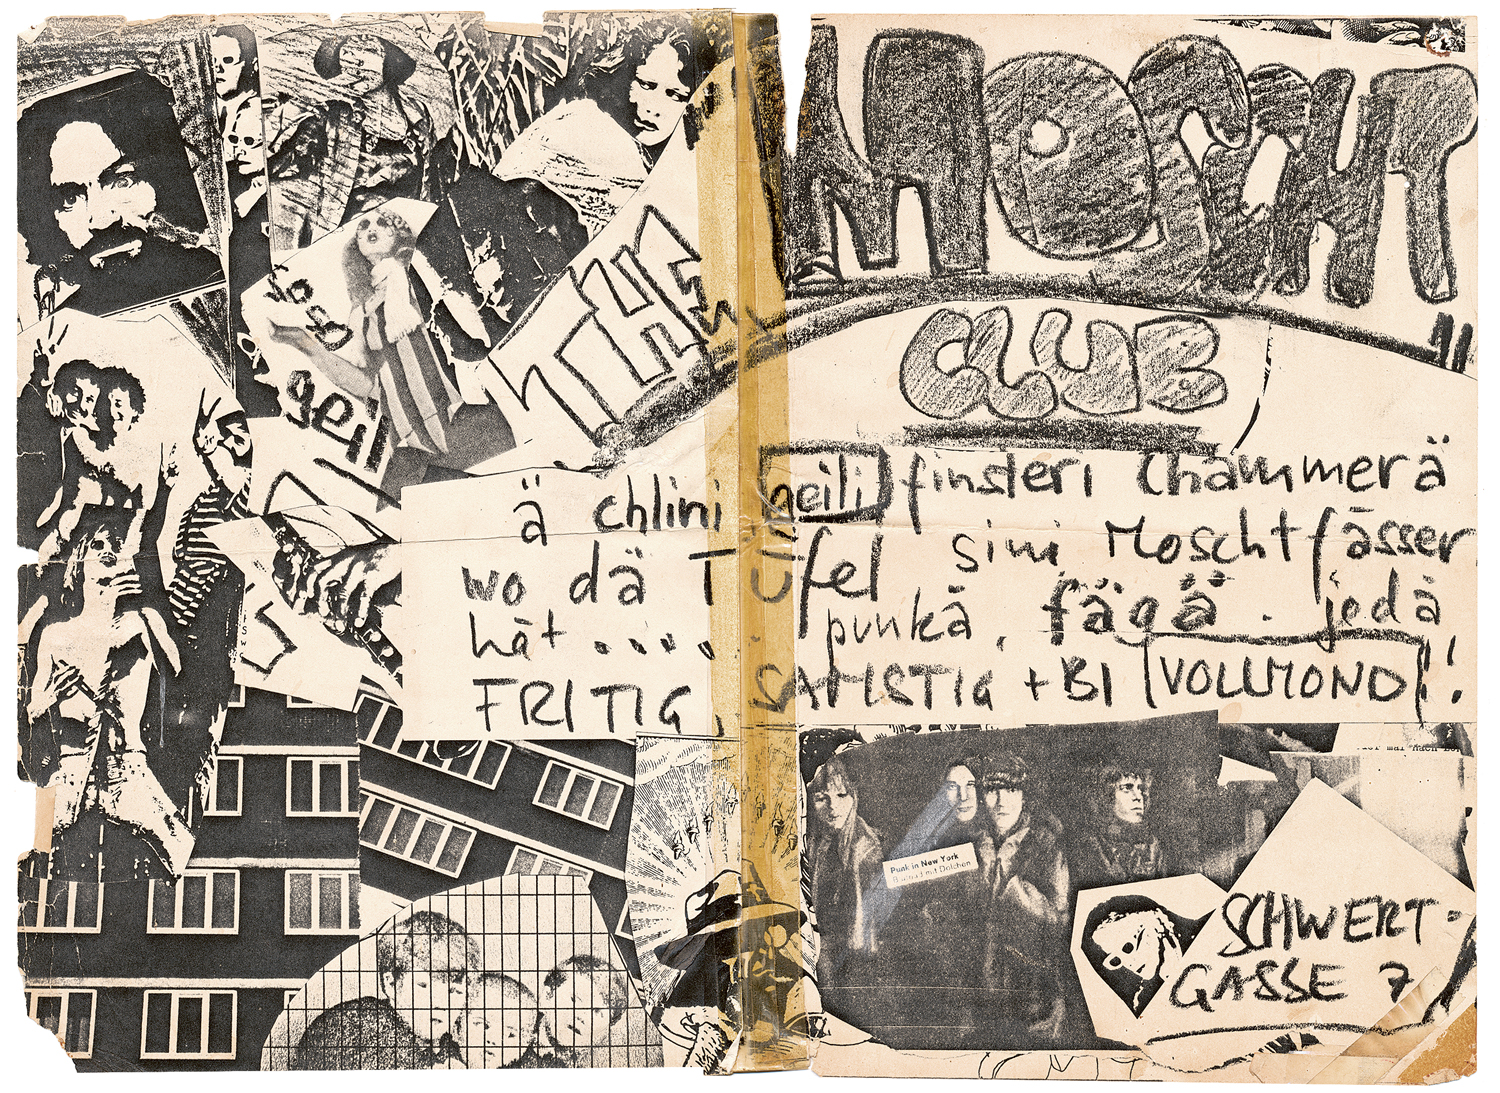 THE MOSCHT
CLUB
geil
ä chlini geili finsteri Chammerä
wo dä Tüfel sini Moschtfässer
hät .... punkä, fägä. jedä
FRITIG, SAMSTIG + BI VOLLMOND!!
Punk in New York
Blutbad mit Dolchen
SCHWERT-
GASSE 7